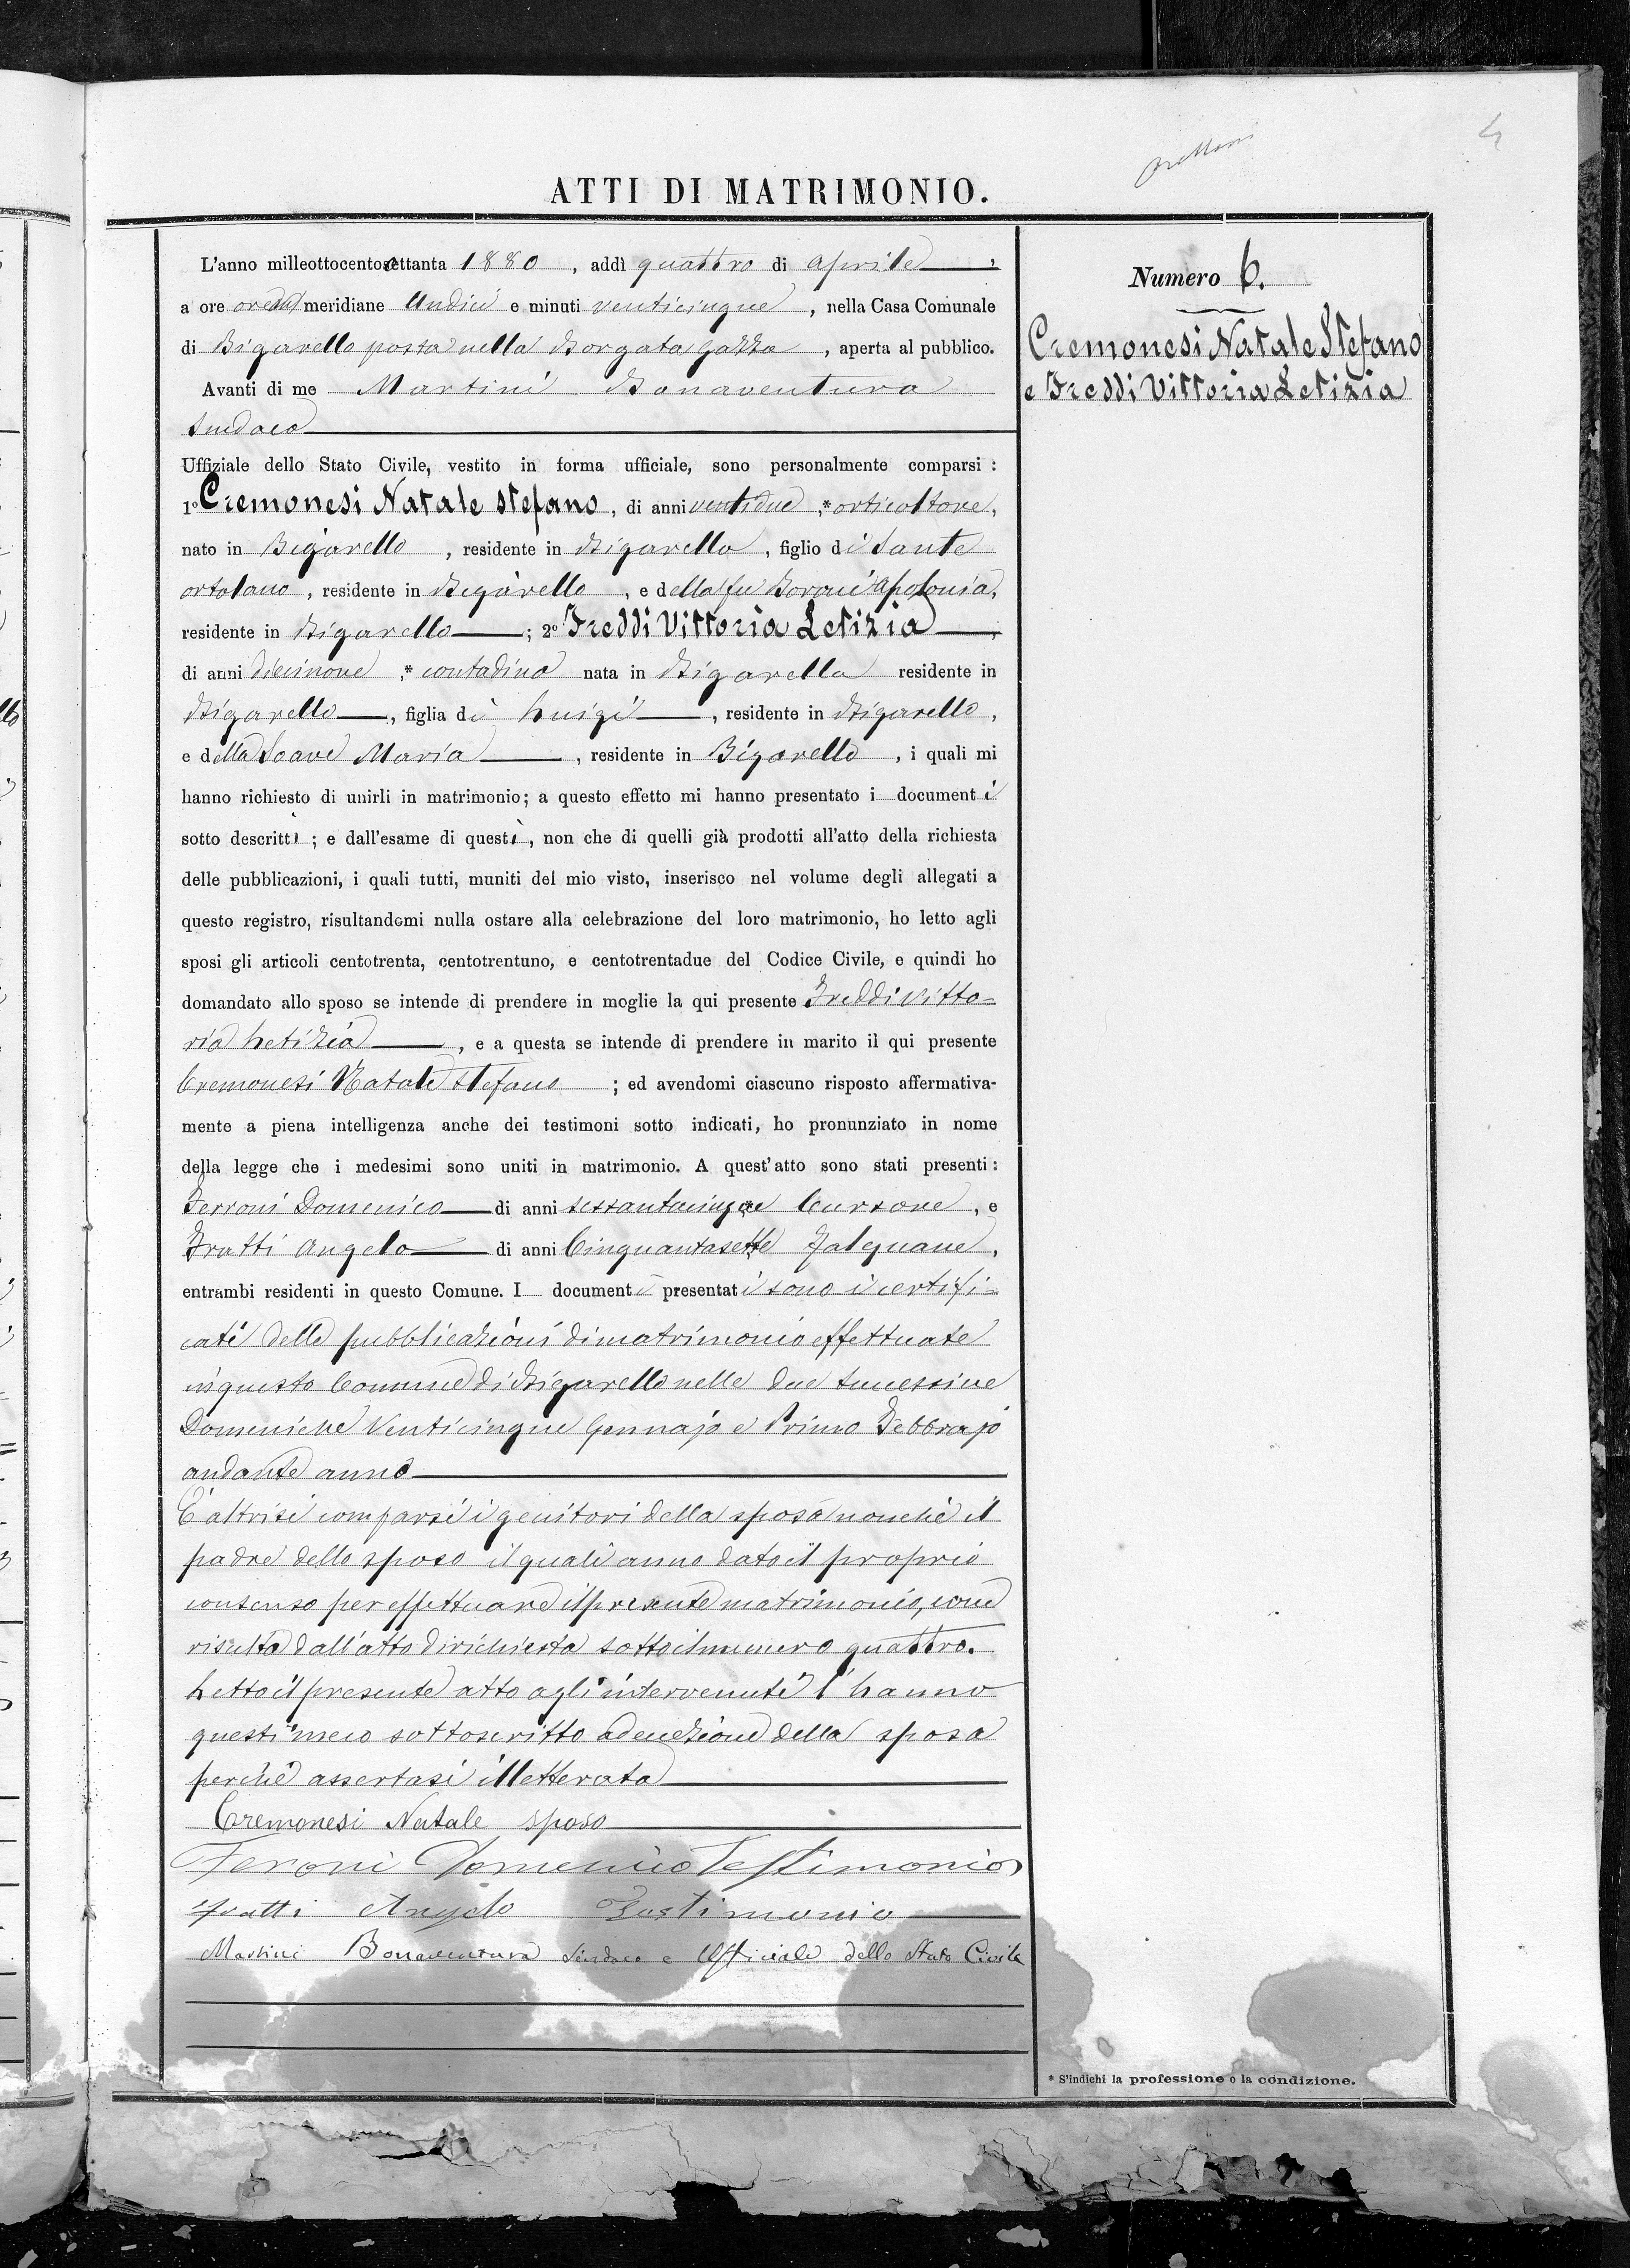 4
ATTI DI MATRIMONIO.
L'anno milleottocentosettanta 1880, addì quattro di aprile,
a ore meridiane Undici e minuti venticinque, nella Casa Comunale
di Bigarello posta nella Borgata Gazzo, aperta al pubblico.
Avanti di me Martini Bonaventura
Sindaco
Uffiziale dello Stato Civile, vestito in forma ufficiale, sono personalmente comparsi:
1º Cremonesi Natale Stefano, di anni ventidue,* orticoltore,
nato in Bigarello, residente in Bigarello, figlio di Sante
ortolano, residente in Bigarello, e della fu Apolonia,
residente in Bigarello; 2º Freddi Vittoria Letizia,
di anni diecinove,* contadina nata in Bigarello residente in
Bigarello, figlia di Luigi, residente in Bigarello,
e della Soave Maria, residente in Bigarello, i quali mi
hanno richiesto di unirli in matrimonio; a questo effetto mi hanno presentato i documenti
sotto descritti; e dall'esame di questi, non che di quelli già prodotti all'atto della richiesta
delle pubblicazioni, i quali tutti, muniti del mio visto, inserisco nel volume degli allegati a
questo registro, risultandomi nulla ostare alla celebrazione del loro matrimonio, ho letto agli
sposi gli articoli centotrenta, centotrentuno, e centotrentadue del Codice Civile, e quindi ho
domandato allo sposo se intende di prendere in moglie la qui presente Freddi Vitto-
ria Letizia, e a questa se intende di prendere in marito il qui presente
Cremonesi Natale Stefano; ed avendomi ciascuno risposto affermativa-
mente a piena intelligenza anche dei testimoni sotto indicati, ho pronunziato in nome
della legge che i medesimi sono uniti in matrimonio. A quest'atto sono stati presenti:
Ferroni Domenico di anni sessantacinque Cursore, e
Fratti Angelo di anni Cinquantasette Falegname,
entrambi residenti in questo Comune. I documenti presentati sono i certifi-
cati delle pubblicazioni di matrimonio effettuate
in questo Comune di Bigarello nelle due successive
Domeniche Venticinque Gennajo e Primo Febbrajo
andante anno
E altrisi comparsi i genitori della sposa nonchè il
padre dello sposo il quali anno dato il proprio
consenso per effettuare il presente matrimonio, come
risulta dall'atto di richiesta sotto il numero quattro.
Letto il presente atto agli intervenuti l'hanno
questi meco sottoscritto ad eccezione della sposa
perchè assertasi illetterata
Cremonesi Natale sposo
Feroni Domenico Testimonio
Fratti Angelo Testimonio
Martini Bonaventura Sindaco e Ufficiale dello Stato Civile
Numero 6.
Cremonesi Natale Stefano
e Freddi Vittoria Letizia
* S'indichi la professione o la condizione.